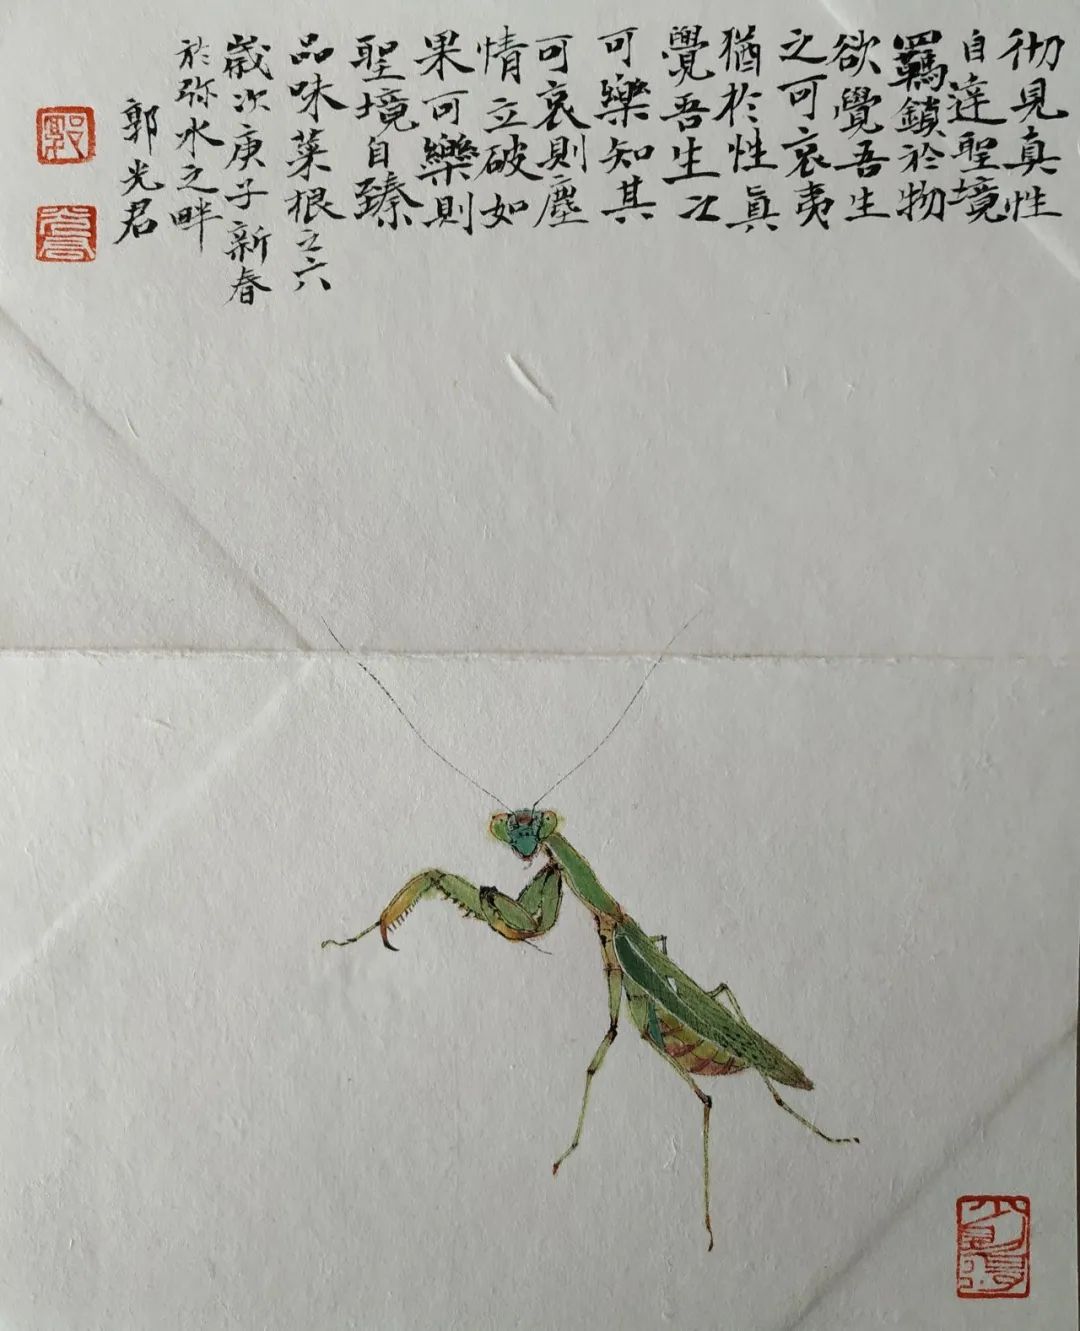 彻見真性
自達聖境
羈鎖於物
欲覺吾生
之可哀夷
猶於性眞
覺吾生之
可樂知其
可哀則塵
情立破如
果可樂則
聖境自臻
品味菜根之六
歲次庚子新春
於弥水之畔
郭光君
郭
光君